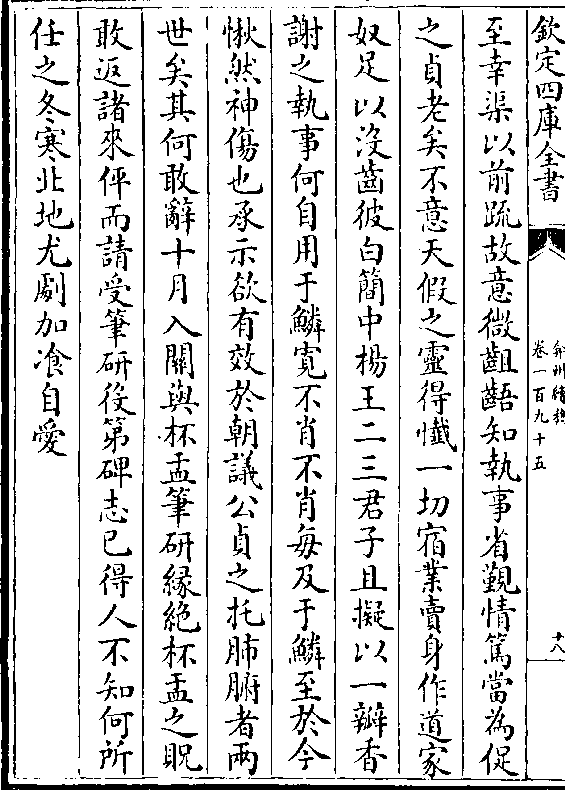 欽定四庫全書
弇州續稿
卷一百九十五
十八
至幸渠以前䟽故意微齟齬知執事省覲情篤當為促
之貞老矣不意天假之靈得懴一切宿業賣身作道家
奴足以沒齒彼白簡中楊王二三君子且擬以一瓣香
謝之執事何自用于鱗寛不肖不肖每及于鱗至於今
愀然神傷也承示欲有效於朝議公貞之托肺腑者兩
世矣其何敢辭十月入關與杯盂筆研縁絶杯盂之貺
敢返諸來伻而請受筆研役第碑志已得人不知何所
任之冬寒北地尤劇加飡自愛